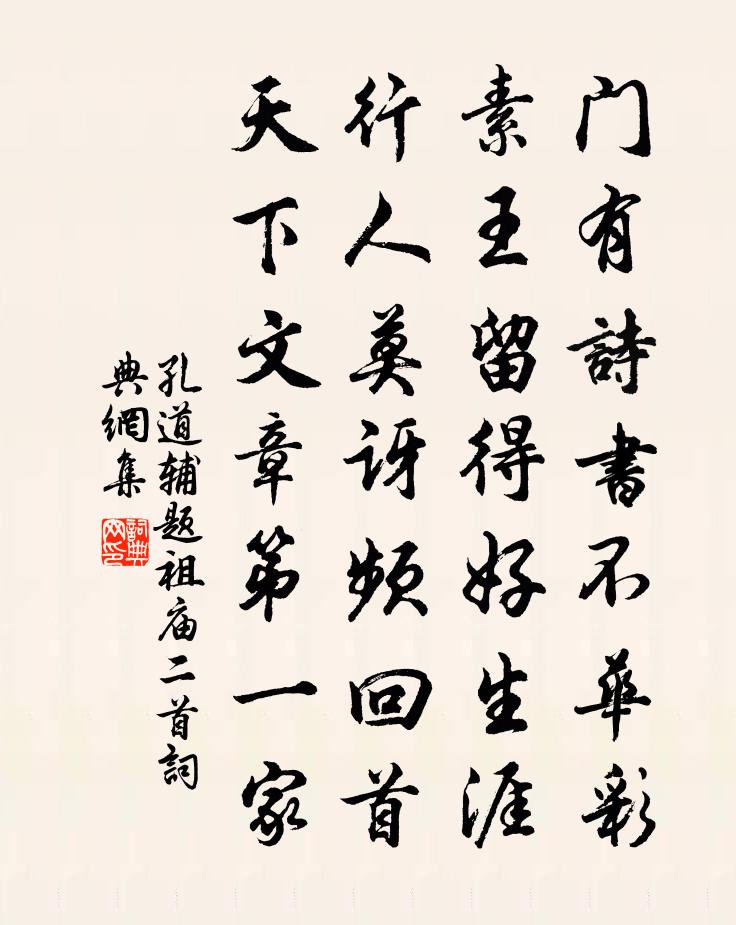 门有詩書不華彩
素王留得好生涯
行人莫讶頻回首
天下文章第一家
孔道辅题祖庙二首詞
典網集
詞典网印